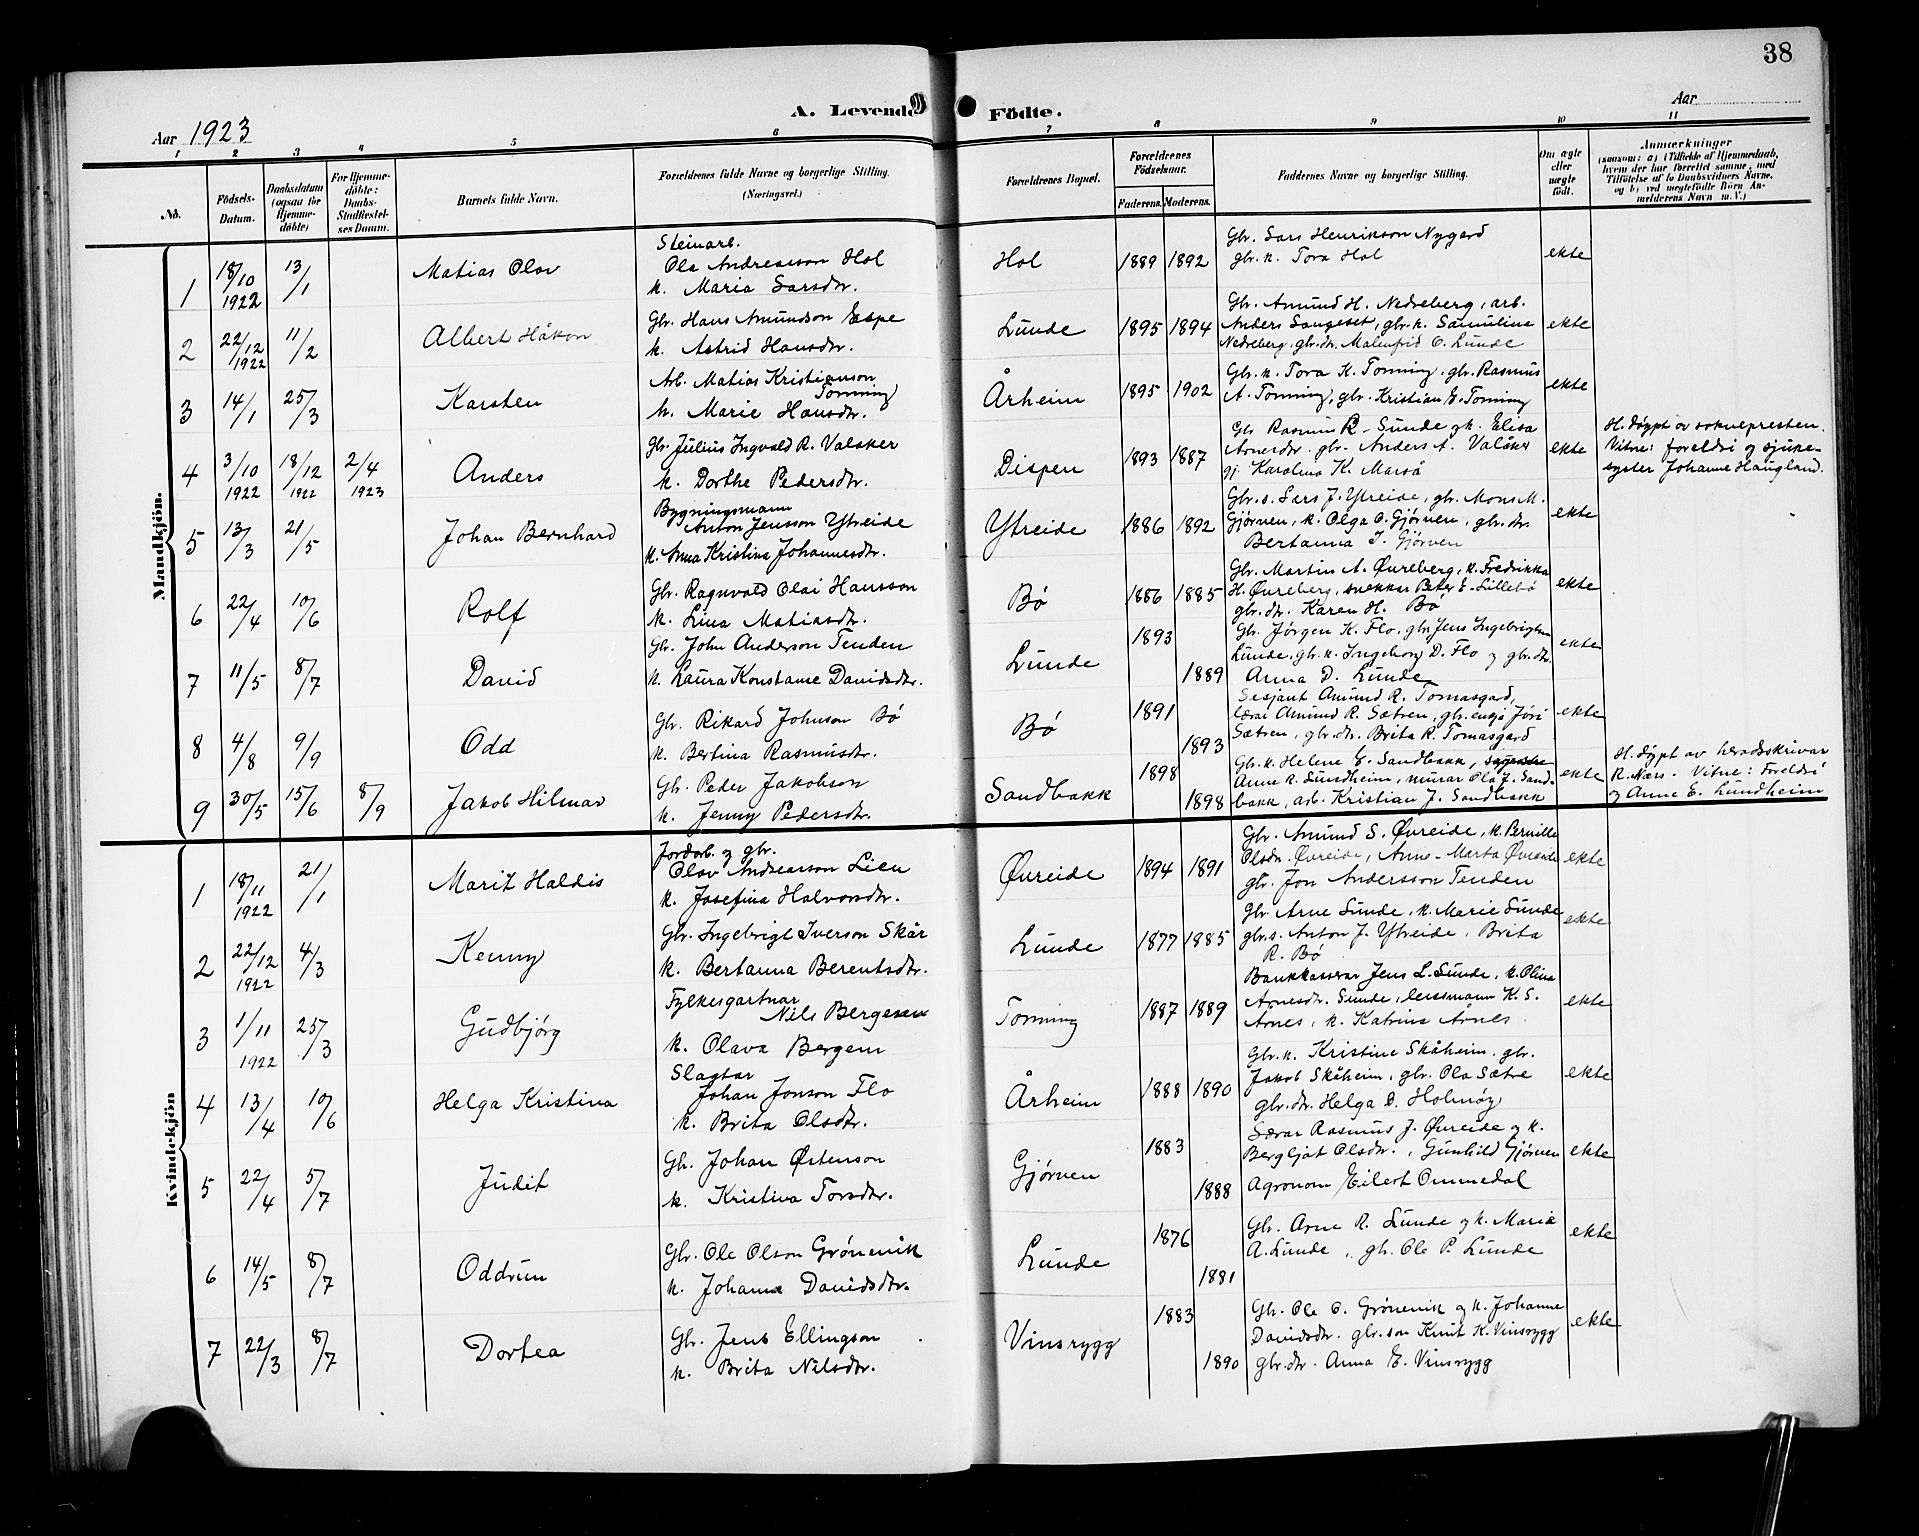 38
A. Levende Födte.
Aar 1923
Aar
1 2 3 4 5 6 7 8 9 10 11
No.
Födsels-Datum.
Daabsdatum (ogsaa for Hjemme-döbte)
For Hjemme-döbte: Daabs-Stadfæstel-ses Datum.
Barnets fulde Navn.
Forældrenes fulde Navne og borgerlige Stilling.
(Næringsvei.)
Forældrenes Bopæl.
Forældrenes Födselsaar.
Faderens. Moderens.
Faddernes Navne og borgerlige Stilling.
Om ægte eller uægte födt.
Anmærkninger
(saasom: a) i Tilfælde af Hjemmedaab,
hvem der har forrettet samme, med
Tilföielse af to Daabsvidners Navne,
og b) ved uægtefödte Börn An-
melderens Navn m. V.)
Mandkjön.
1 18/10 1922 13/1 Matias Olav
Steinarb.
Ola Andreasson Hol
k. Maria Larsdtr.
Hol 1889 1892
Gbr. Lars Henrikson Nygard
gbr.k. Tora Hol
ekte
2 22/12 1922 11/2 Albert Håkon
Gbr. Hans Amundson Espe
k. Astrid Hansdtr.
Lunde 1895 1894
Gbr. Amund H. Nedreberg, arb.
Anders Sangeset, gbr.k. Samuline
Nedreberg, gbr.dr. Malenfrid O. Lunde
ekte
3 14/1 25/3 Karsten
Arb. Matias Kristianson
Tonning
k. Marie Hansdtr.
Årheim 1895 1902
Gbr.k. Tora K. Tonning, gbr. Rasmus
A. Tonning, gbr. Kristian E. Tonning
ekte
4 3/10 1922 18/12 1922 2/4 1923 Anders
Gbr. Julius Ingvald R. Valaker
k. Dorthe Pedersdtr.
Dispen 1893 1887
Gbr Rasmus R. Sunde og k. Elisa
Arnesdr. gbr. Anders A. Valåker
gj. Karolina K. Marså
ekte
H. døypt av soknepresten.
Vitne: foreldri og sjuke-
syster Johanne Haugland.
5 13/3 21/5 Johan Bernhard
Bygningsmann
Anton Jensson Ytreide
k. Anna Kristina Johannesdtr.
Ytreide 1886 1892
Gbr.s. Lars J. Ytreide, gbr. Mons M.
Gjørven, k. Olga O. Gjørven, gbr.dr.
Bertanna J. Gjørven
ekte
6 22/4 10/6 Rolf
Gbr. Ragnvald Olai Hansson
k. Lina Matiasdtr.
Bø 1886 1885
Gbr. Martin A. Øvreberg, k. Fredrikka
H. Øvreberg, snekker Peter E. Lillebø
gbr.dr. Karen H. Bø
ekte
7 11/5 8/7 David
Gbr. John Anderson Tenden
k. Laura Konstanse Davidsdtr.
Lunde 1893 1889
Gbr. Jørgen K. Flo, gbr. Jens Ingebrigtsen
Lunde, gbr.k. Ingeborg D. Flo og gbr.dr.
Anna D. Lunde
ekte
8 4/8 9/9 Odd
Gbr. Rikard Johnson Bø
k. Bertina Rasmusdtr.
Bø 1891 1893
Sersjant Amund R. Tomasgard,
lærar Amund R. Sætren, gbr. enkja Jøri
Sætren, gbr.dr. Brita R. Tomasgard
ekte
9 30/5 15/6 8/9 Jakob Hilmar
Gbr. Peder Jakobson
k. Jenny Pedersdtr.
Sandbakk 1898 1898
Gbr.k. Helene E. Sandbakk,
Anne R. Sundheim, murar Ola J. Sand-
bakk, arb. Kristian J. Sandbakk
ekte
H. døypt av heradsskrivar
R. Næs. Vitne: Foreldri
og Anne E. Lundheim
Kvindekjön
1 18/11 1922 21/1 Marit Haldis
Jordarb. og gbr.
Olav Andreasson Lien
k. Josefina Halvorsdtr.
Øvreide 1894 1891
Gbr. Amund S. Øvreide, k. Pernille
Olsdr. Øvreide, Anne-Marta Øvreide
gbr. Jon Andersson Tenden
ekte
2 22/12 1922 4/3 Kenny
Gbr. Ingebrigt Iverson Skår
k. Bertanna Berentsdtr.
Lunde 1877 1885
Gbr. Arne Sunde, k. Marie Sunde
gbr.s. Anton J. Ytreide, Brita
R. Bø
ekte
3 1/11 1922 25/3 Gudbjørg
Fylkesgartnar
Nils Bergesen
k. Olava Bergem
Tonning 1887 1889
Bankkasserar Jens L. Sunde, k. Olina
Arnesdtr. Sunde, lensmann K. S.
Årnes, k. Katrine Årnes
ekte
4 13/4 10/6 Helga Kristina
Slagtar
Johan Jonson Flo
k. Brita Olsdtr.
Årheim 1888 1890
Gbr.k. Kristine Skåheim, gbr.
Jakob Skåheim, gbr. Ola Sætre
gbr.dr. Helga O. Holmøy
ekte
5 22/4 5/7 Judit
Gbr. Johan Østenson
k. Kristina Torsdtr.
Gjørven 1883 1888
Lærar Rasmus J. Øvreide og k.
Bergljot Olsdtr., Gunhild Gjørven
Agronom Eilert Ommedal
ekte
6 14/5 8/7 Oddrun
Gbr. Ole Olson Grønevik
k. Johanna Davidsdtr.
Lunde 1876 1881
Gbr. Arne R. Lunde og k. Maria
A. Lunde, gbr. Ole P. Lunde
ekte
7 22/3 8/7 Dortea
Gbr. Jens Ellingson
k. Brita Nilsdtr.
Vinsrygg 1883 1890
Gbr. Ole O. Grønevik og k. Johanne
Davidsdtr. gbr.son Knut K. Vinsrygg
gbr.dtr. Anna E. Vinsrygg
ekte